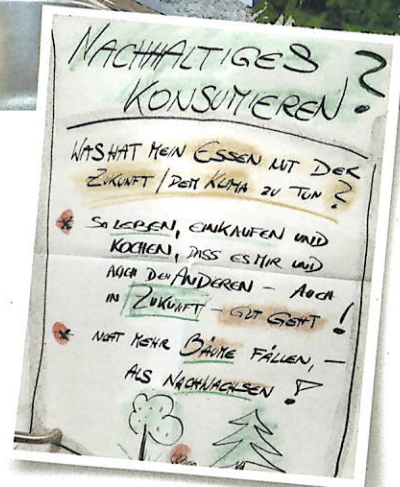 NACHHALTIGES
KONSUMIEREN?
WAS HAT MEIN ESSEN MIT DER
ZUKUNFT / DEM KLIMA ZU TUN?
* SO LEBEN, EINKAUFEN UND
KOCHEN, DASS ES MIR UND
AUCH DEN ANDEREN – AUCH
IN ZUKUNFT – GUT GEHT!
* NICHT MEHR BÄUME FÄLLEN, –
ALS NACHWACHSEN!